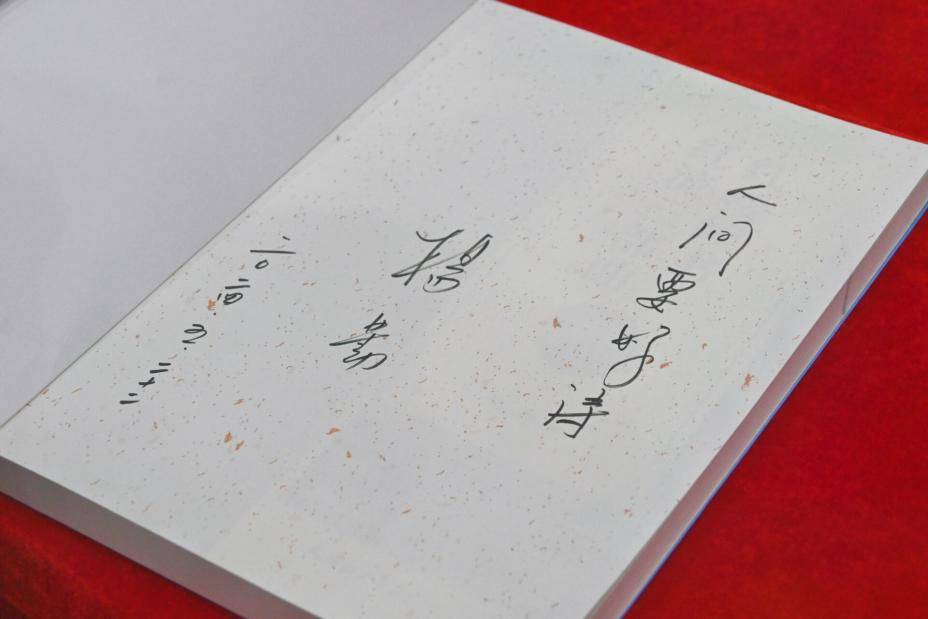 人间要好诗
杨
二〇二四. . 二十二